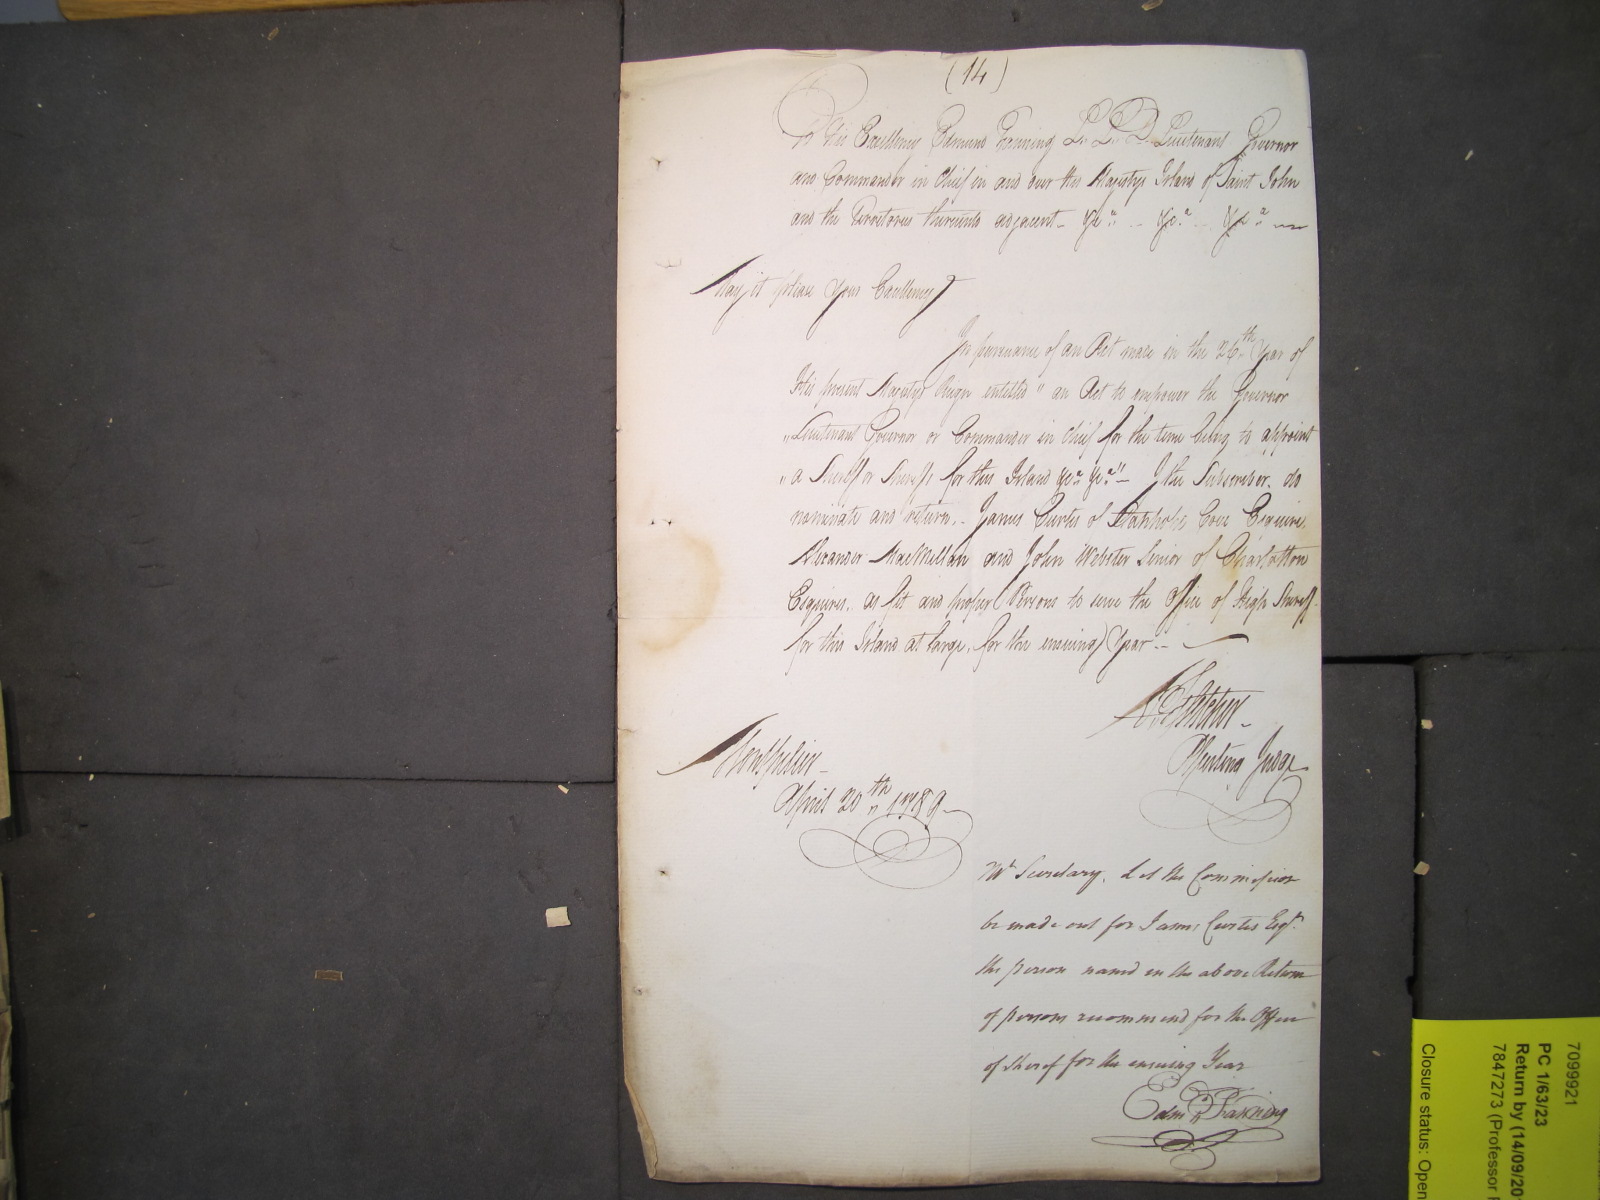 (14)
To His Excellency Edmund Fanning L.. L.. D.. Lieutenant Governor
and Commander in Chief in and over this Majestys Island of Saint John
and the Territories thereunto adjacent - &c.a .. &c.a .. &c.a
May it please Your Excellency
In pursuance of an Act made in the 26.th Year of
His present Majestys Reign entitled " an Act to empower the Governor
"Lieutenant Governor or Commander in chief for the time being to appoint
"a Sheriff or Sheriffs for this Island &c.a &c.a" - I the Subscriber, do
nominate and return.. James Curtis of Cove Esquire,
Alexander MacMillan and John Webster Senior of Charlotton
Esquires.. as fit and proper Persons to serve the Office of High Sheriff
for this Island at large, for the ensuing Year ..
Assisting Judge
April 20th 1789
Mr Secretary. Let the Commission
be made out for James Curtis Esqr.
the person named in the above Return
of persons recommend for the Office
of Sheref for the ensuing Year
Edmd Fanning
7099921
PC 1/63/23
Return by (14/09/20
7847273 (Professor
Closure status: Open